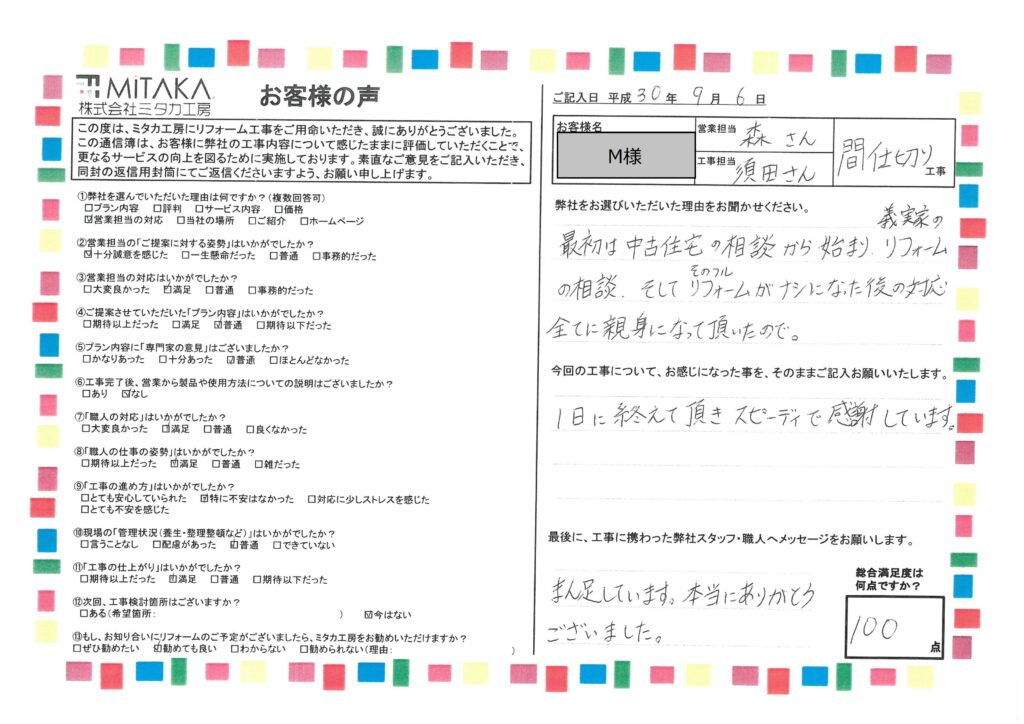 MiTAKA
株式会社ミタカ工房
お客様の声
この度は、ミタカ工房にリフォーム工事をご用命いただき、誠にありがとうございました。
この通信簿は、お客様に弊社の工事内容について感じたままに評価していただくことで、
更なるサービスの向上を図るために実施しております。素直なご意見をご記入いただき、
同封の返信用封筒にてご返信くださいますよう、お願い申し上げます。
①弊社を選んでいただいた理由は何ですか?(複数回答可)
□プラン内容 □評判 □サービス内容 □価格
☑営業担当の対応 □当社の場所 □ご紹介 □ホームページ
②営業担当の「ご提案に対する姿勢」はいかがでしたか?
☑十分誠意を感じた □一生懸命だった □普通 □事務的だった
③営業担当の対応はいかがでしたか?
□大変良かった ☑満足 □普通 □事務的だった
④ご提案させていただいた「プラン内容」はいかがでしたか?
□期待以上だった □満足 ☑普通 □期待以下だった
⑤プラン内容に「専門家の意見」はございましたか?
□かなりあった □十分あった ☑普通 □ほとんどなかった
⑥工事完了後、営業から製品や使用方法についての説明はございましたか?
□あり ☑なし
⑦「職人の対応」はいかがでしたか?
□大変良かった ☑満足 □普通 □良くなかった
⑧「職人の仕事の姿勢」はいかがでしたか?
□期待以上だった ☑満足 □普通 □雑だった
⑨「工事の進め方」はいかがでしたか?
□とても安心していられた ☑特に不安はなかった □対応に少しストレスを感じた
□とても不安を感じた
⑩現場の「管理状況(養生・整理整頓など)」はいかがでしたか?
□言うことなし □配慮があった ☑普通 □できていない
⑪「工事の仕上がり」はいかがでしたか?
□期待以上だった ☑満足 □普通 □期待以下だった
⑫次回、工事検討箇所はございますか?
□ある(希望箇所: ) ☑今はない
⑬もし、お知り合いにリフォームのご予定がございましたら、ミタカ工房をお勧めいただけますか?
□ぜひ勧めたい ☑勧めても良い □わからない □勧められない(理由: )
ご記入日 平成 30 年 9 月 6 日
お客様名
M様
営業担当 森 さん
工事担当 須田さん
間仕切り 工事
弊社をお選びいただいた理由をお聞かせください。
義実家の
最初は中古住宅の相談から始まり、リフォーム
そのフル
の相談、そしてリフォームがナシになった後の対応
全てに親身になって頂いたので。
今回の工事について、お感じになった事を、そのままご記入お願いいたします。
1日に終えて頂きスピーディで感謝しています。
最後に、工事に携わった弊社スタッフ・職人へメッセージをお願いします。
まん足しています。本当にありがとう
ございました。
総合満足度は
何点ですか?
100 点